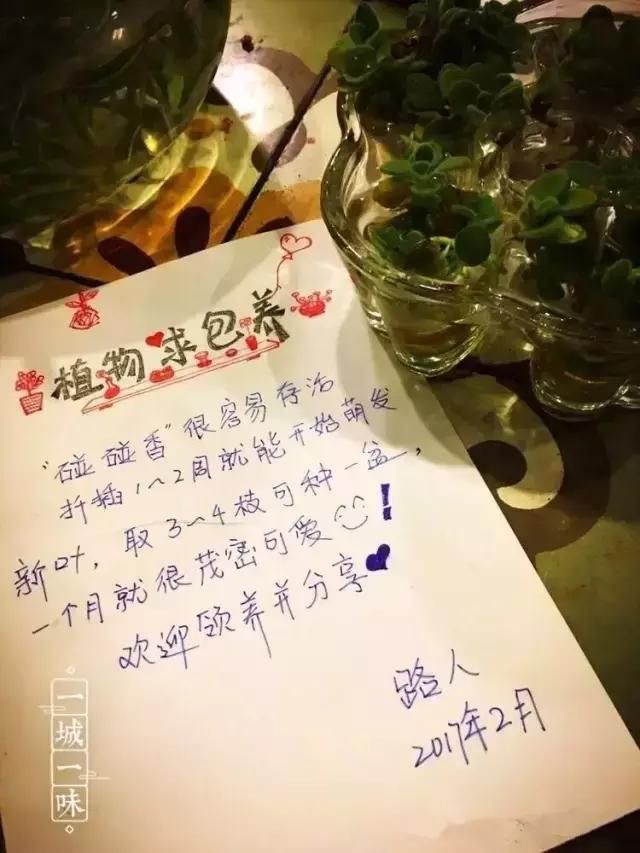 植物求包养
"碰碰香"很容易存活
扦插1~2周就能开始萌发
新叶,取3~4枝可种一盆,
一个月就很茂密可爱!
欢迎领养并分享
路人
2017年2月
一城一味